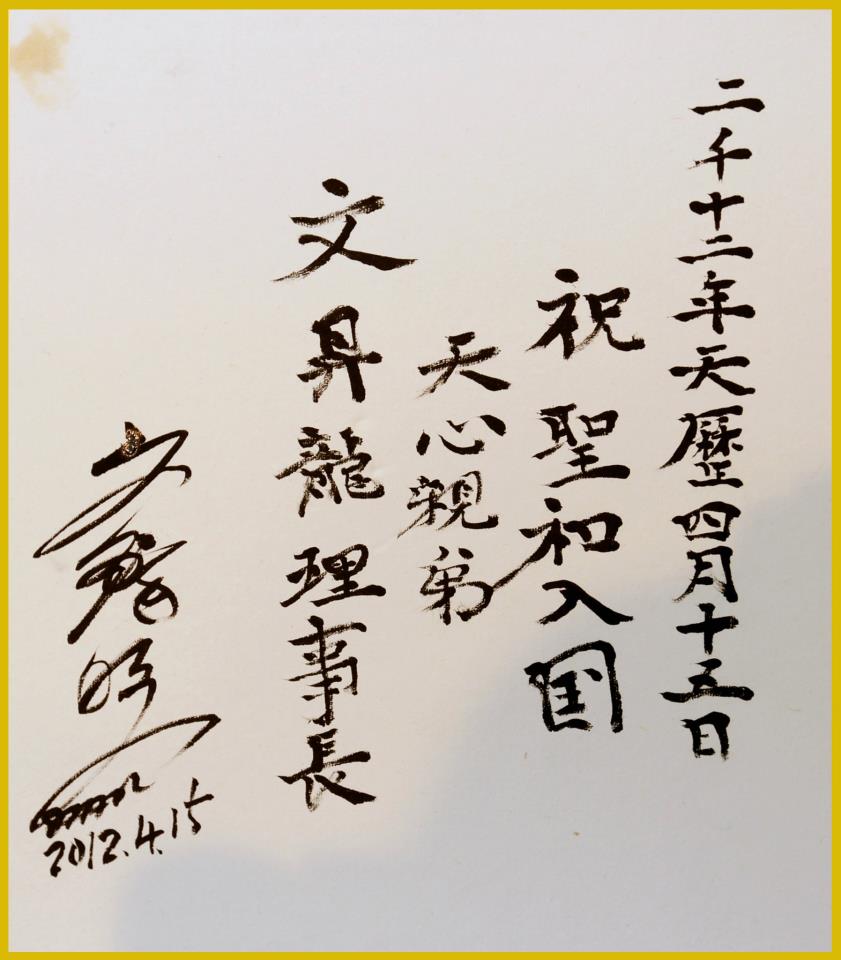 二千十二年天歷四月十五日
祝 聖和入国
天心親弟
文昇龍理事長
文鮮明
2012.4.15